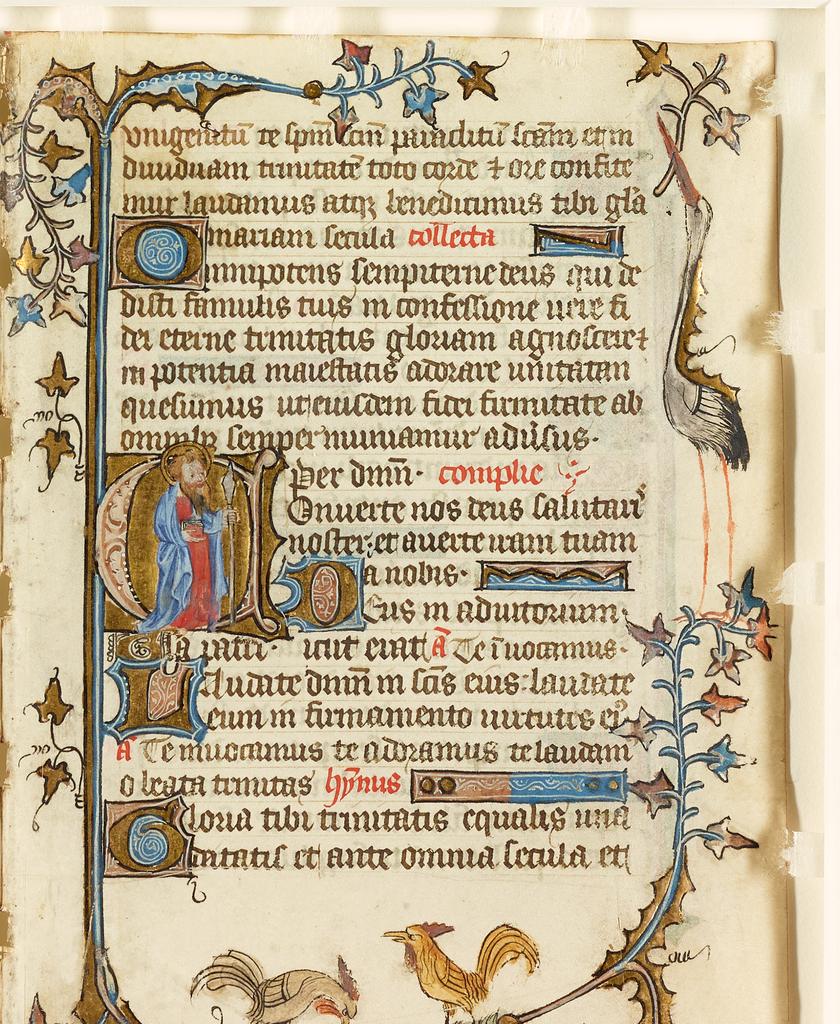 unigenitū te spm̄ scm̄ paraclitū scām et in
diuiduam trinitatē toto corde ⁊ ore confite
mur laudamus atqꝫ benedicimus tibi glā
mariam secula collecta
Omnipotens sempiterne deus qui de
disti famulis tuis in confessione uere fi
dei eterne trinitatis gloriam agnoscere ⁊
in potentia maiestatis adorare unitatan
quesumus ut eiusdem fidei firmitate ab
omnibꝫ semper muniamur aduſus.
Per dnm̄. complie
Conuerte nos deus salutaris
noster. et auerte iram tuam
a nobis.
Deus in adiutorium.
Gla patri. Sicut erat A̅ Te īuocamus.
Laudate dnm̄ in scīs eius: laudate
eum in firmamento uirtutis eiꝰ
A̅ Te inuocamus te adoramus te laudam
o beata trinitas hȳnus
Gloria tibi trinitatis equalis una
deitatis et ante omnia secula et